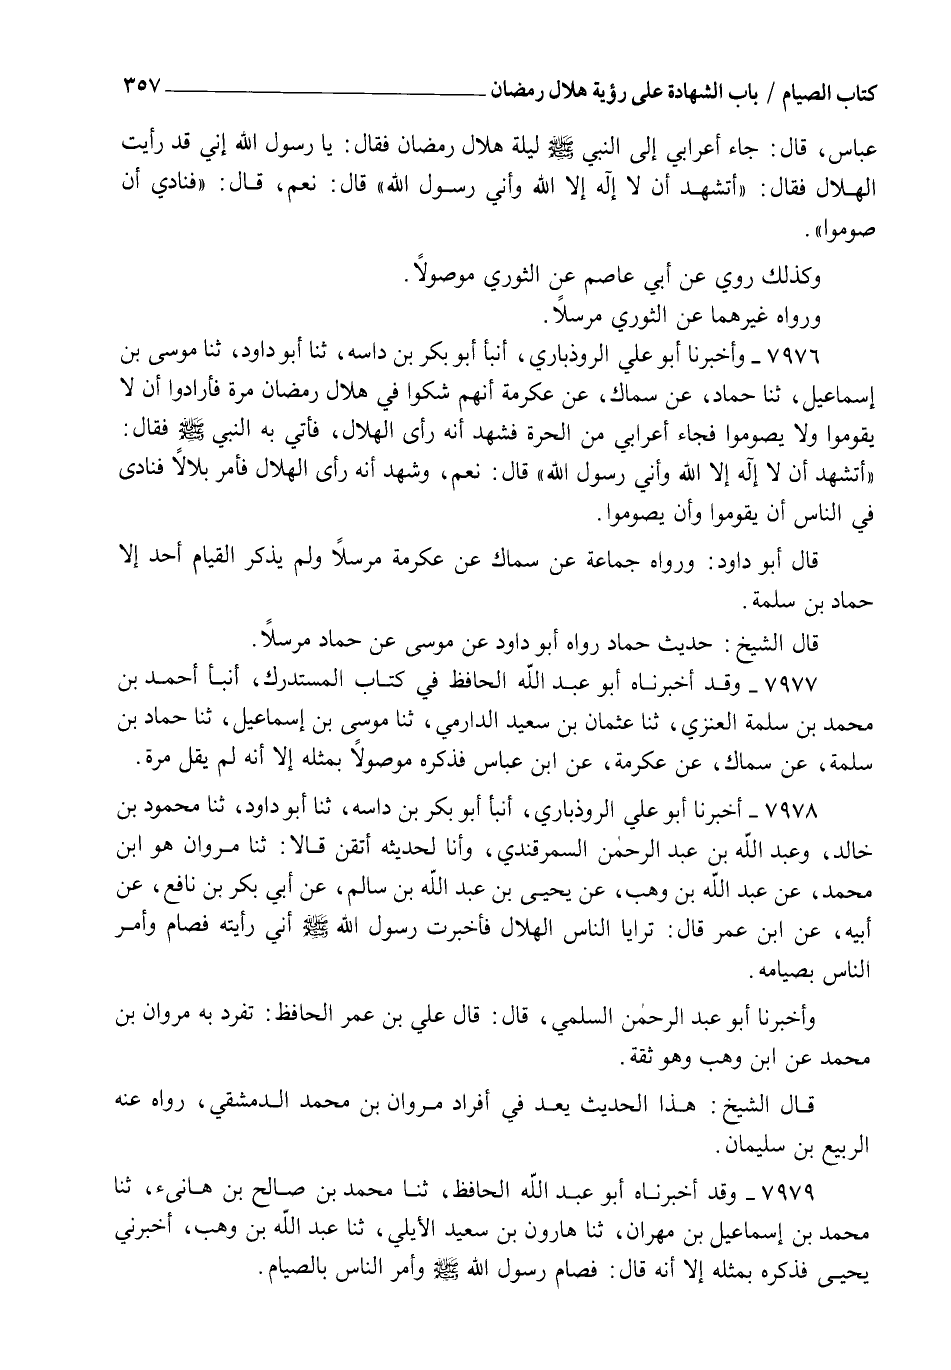 كتاب الصيام / باب الشهادة على رؤية هلال رمضان ٣٥٧
عباس، قال: جاء أعرابي إلى النبي ﷺ ليلة هلال رمضان فقال: يا رسول الله إني قد رأيت
الهلال فقال: «أتشهد أن لا إلٓه إلا الله وأني رسول الله» قال: نعم، قال: «فنادي أن
صوموا».
وكذلك روي عن أبي عاصم عن الثوري موصولاً.
ورواه غيرهما عن الثوري مرسلاً.
٧٩٧٦ ـ وأخبرنا أبو علي الروذباري، أنبأ أبو بكر بن داسه، ثنا أبو داود، ثنا موسى بن
إسماعيل، ثنا حماد، عن سماك، عن عكرمة أنهم شكوا في هلال رمضان مرة فأرادوا أن لا
يقوموا ولا يصوموا فجاء أعرابي من الحرة فشهد أنه رأى الهلال، فأتي به النبي ﷺ فقال:
«أتشهد أن لا إلٓه إلا الله وأني رسول الله» قال: نعم، وشهد أنه رأى الهلال فأمر بلالاً فنادى
في الناس أن يقوموا وأن يصوموا.
قال أبو داود: ورواه جماعة عن سماك عن عكرمة مرسلاً ولم يذكر القيام أحد إلا
حماد بن سلمة.
قال الشيخ: حديث حماد رواه أبو داود عن موسى عن حماد مرسلاً.
٧٩٧٧ ـ وقد أخبرناه أبو عبد الله الحافظ في كتاب المستدرك، أنبأ أحمد بن
محمد بن سلمة العنزي، ثنا عثمان بن سعيد الدارمي، ثنا موسى بن إسماعيل، ثنا حماد بن
سلمة، عن سماك، عن عكرمة، عن ابن عباس فذكره موصولاً بمثله إلا أنه لم يقل مرة.
٧٩٧٨ ـ أخبرنا أبو علي الروذباري، أنبأ أبو بكر بن داسه، ثنا أبو داود، ثنا محمود بن
خالد، وعبد الله بن عبد الرحمٰن السمرقندي، وأنا لحديثه أتقن قالا: ثنا مروان هو ابن
محمد، عن عبد الله بن وهب، عن يحيى بن عبد الله بن سالم، عن أبي بكر بن نافع، عن
أبيه، عن ابن عمر قال: ترايا الناس الهلال فأخبرت رسول الله ﷺ أني رأيته فصام وأمر
الناس بصيامه.
وأخبرنا أبو عبد الرحمٰن السلمي، قال: قال علي بن عمر الحافظ: تفرد به مروان بن
محمد عن ابن وهب وهو ثقة.
قال الشيخ: هذا الحديث يعد في أفراد مروان بن محمد الدمشقي، رواه عنه
الربيع بن سليمان.
٧٩٧٩ ـ وقد أخبرناه أبو عبد الله الحافظ، ثنا محمد بن صالح بن هانىء، ثنا
محمد بن إسماعيل بن مهران، ثنا هارون بن سعيد الأيلي، ثنا عبد الله بن وهب، أخبرني
يحيى فذكره بمثله إلا أنه قال: فصام رسول الله ﷺ وأمر الناس بالصيام.